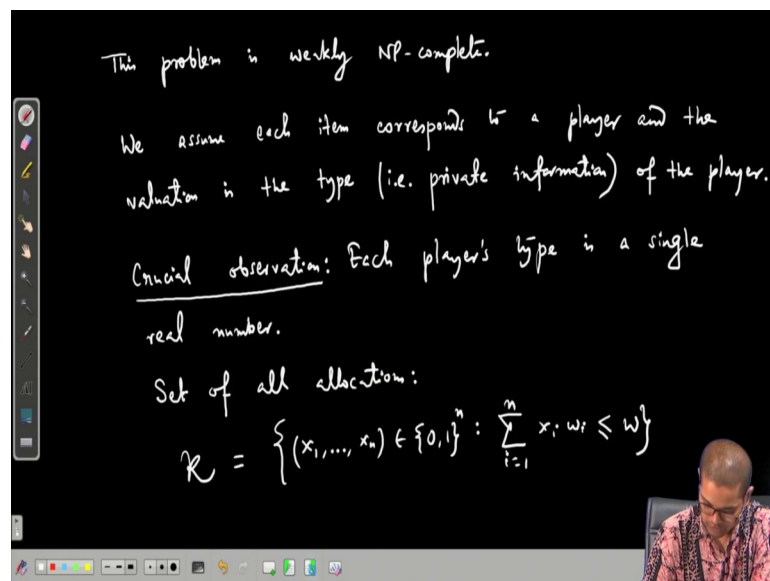 This problem is weakly NP-complete.
We assume each item corresponds to a player and the
valuation is the type (i.e. private information) of the player.
Crucial observation: Each player's type is a single
real number.
Set of all allocation:
K = {(x₁,..., xₙ) ∈ {0,1}ⁿ : ∑ᵢ₌₁ⁿ xᵢ wᵢ ≤ W}